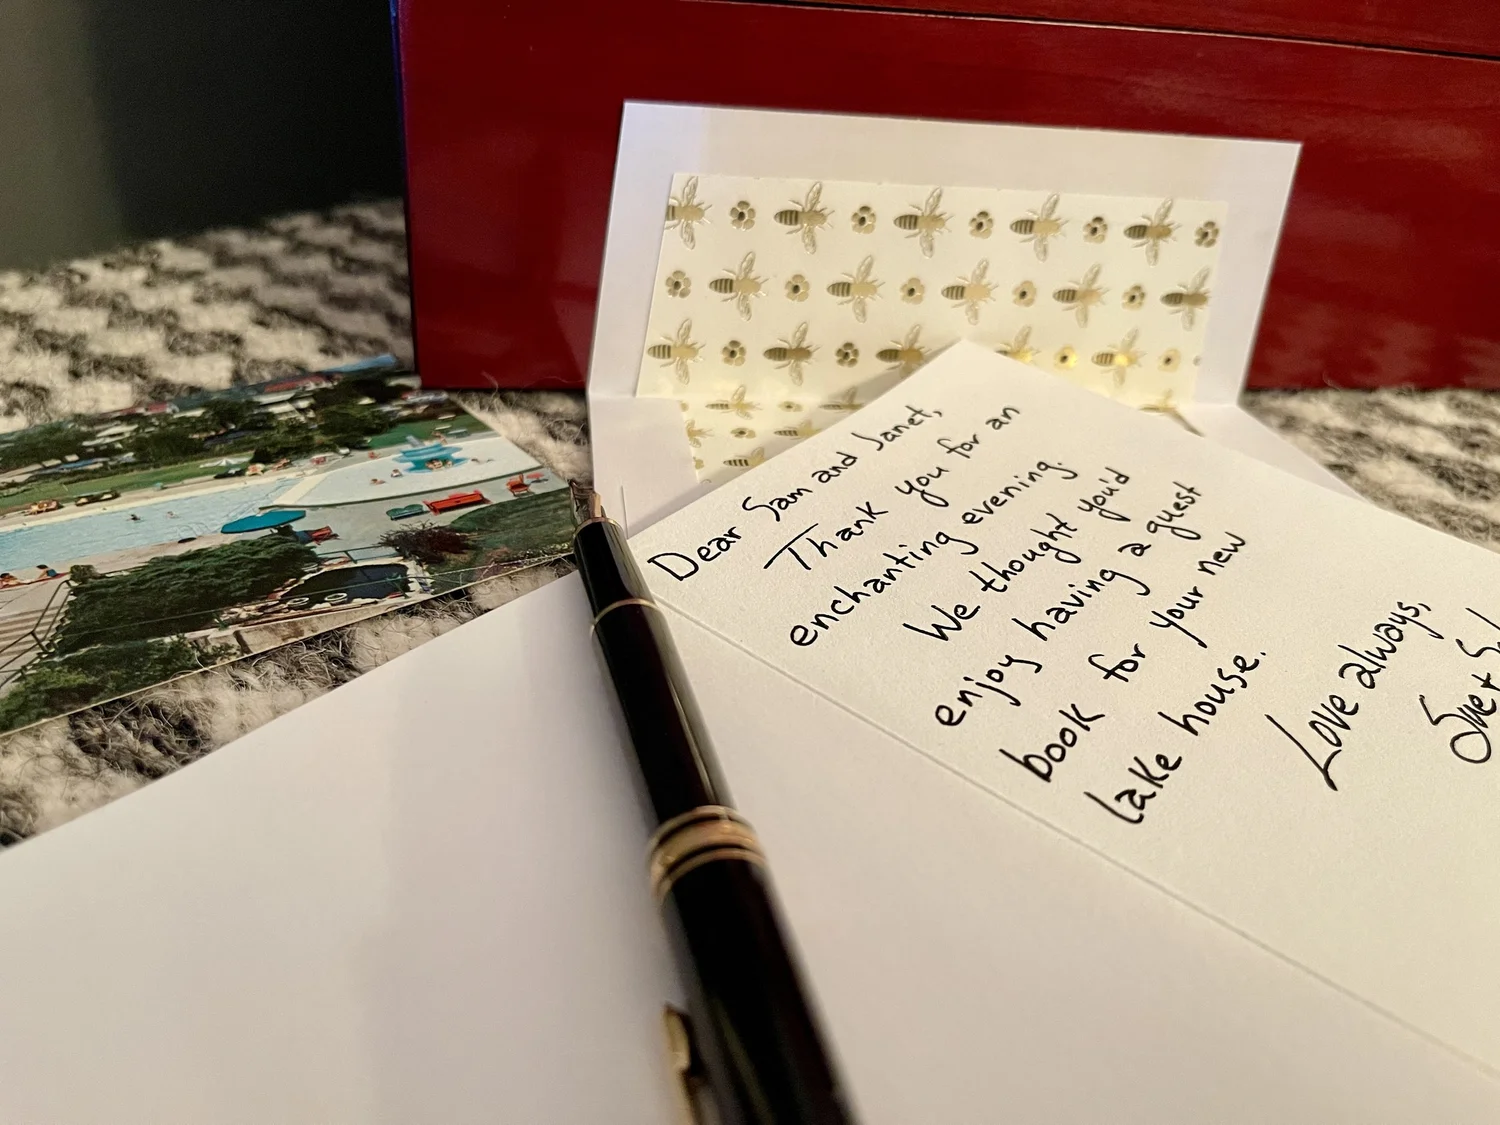 Dear Sam and Janet,
Thank you for an
enchanting evening.
We thought you'd
enjoy having a guest
book for your new
lake house.
Love always,
Sue +